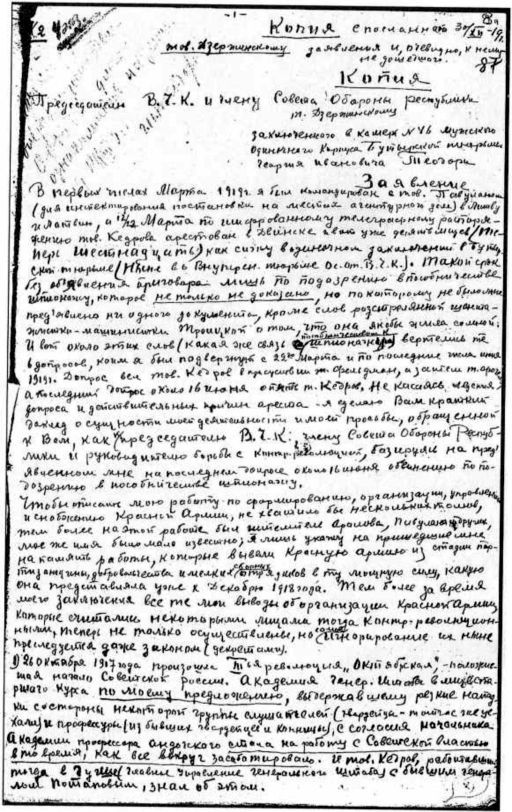 -1-
Копия с посланного 30/XII-19
тов. Дзержинскому заявления и, очевидно, к нему
не дошедшего. 87
Копия
Председателю В.Ч.К. и члену Совета Обороны Республики
т. Дзержинскому
заключенного в камере № 16 мужского
одиночного корпуса Бутырской тюрьмы
Георгия Ивановича Теодори.
Заявление.
В первых числах Марта 1919 г. я был командирован с тов. Павулан
(для инспектирования постановки на местах агентурного дела) в Литву
и Латвию, а 12/ Марта по шифрованному телеграфному распоря-
жению тов. Кедрова арестован в Двинске и вот уже десять месяцев /те
перь шестнадцать/ как сижу в одиночном заключении в Бутыр
ской тюрьме /Ныне во Внутрен. тюрьме Ос. от. В.Ч.К./. Такой срок
без объявления приговора лишь по подозрению в пособничестве
шпионажу, которое не только не доказано, но по которому не было мне
предъявлено ни одного документа, кроме слов расстрелянной
машинистки Троицкой о том, что она якобы жила со мной.
И вот около этих слов (какая же связь с шпионажем) вертелись те
допросов, коим я был подвергнут с 22го Марта и по последние
1919 г. Допрос вел тов. Кедров в присутствии т. Фельдман, а затем т.
а последний допрос около 16 июня опять т. Кедров. Не касаясь ведения
допроса и действительных причин ареста я сделаю Вам краткий
доклад о сущности моей деятельности и моей просьбы, обращенной
к Вам, как председателю В.Ч.К., члену Совета Обороны Респуб-
лики и руководителю борьбы с контр-революцией, базируясь на пред'
явленном мне на последнем допросе около 16 июня обвинению по по-
дозрению в пособничестве шпионажу.
Чтобы описать мою работу по формированию, организации, управлению
и снабжению Красной Армии, не хватило бы нескольких томов,
тем более на этой работе был Аралова,
мое же имя было мало известно; я лишь укажу на пришедшие мне
на память работы, которые вывели Красную армию из стадии пар-
тизанщины, добровольчества и мелких отрядиков в ту мощную силу, какую
она представляла уже к Декабрю 1918 года. Тем более за время
моего заключения все те мои выводы об организации Красной Армии,
которые считались некоторыми лицами тогда контр-революцион-
ными, теперь не только осуществлены, но игнорирование их ныне
преследуется даже законом (декретами).
1) 26 Октября 1917 года произошла революция "Октябрьская", - положив-
шая начало Советской России. Академия Генер. Штаба в лице
курса по моему предложению, выдержавшему резкие напад
ки со стороны некоторой группы слушателей (
) и профессуры (из бывших гвардейцев и конницы), с согласия начальника
Академии профессора Андогского стала на работу с Советской властью
в то время, как все вокруг саботировало. И тов. Кедров, работавший
тогда в Гугш (Главное Управление Генерального Штаба) с бывшим генера-
лом Потаповым, знал об этом.